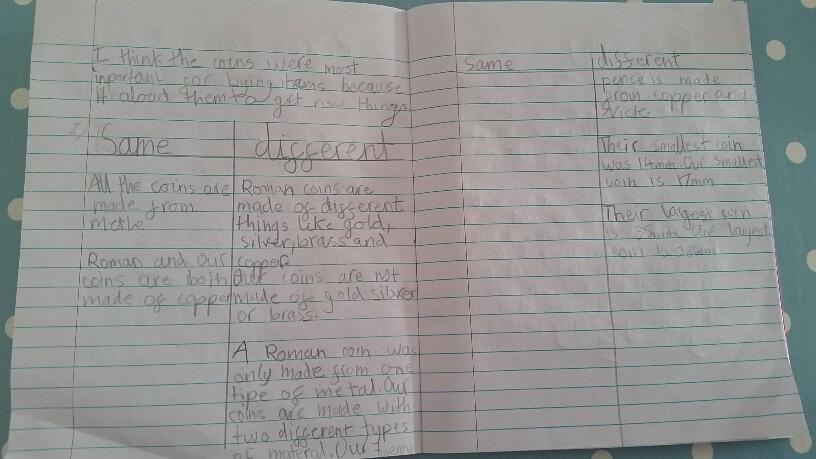 I think the coins were most
inportant for buying items because
it aload them to get new things
2)
Same
different
All the coins are
made from
metle
Roman and our
coins are both
made of copper
Roman coins are
made of different
things like gold,
silver, brass and
copper.
Our coins are not
made of gold silver
or brass.
A Roman coin was
only made from one
tipe of metal. Our
coins are made with
two different types
of materal. Our
Same
different
pence is made
from copper and
Their smallest coin
was 14mm. Our smallest
coin is 17mm
Their largest coin
is 35mm. Our largest
coin is 28mm